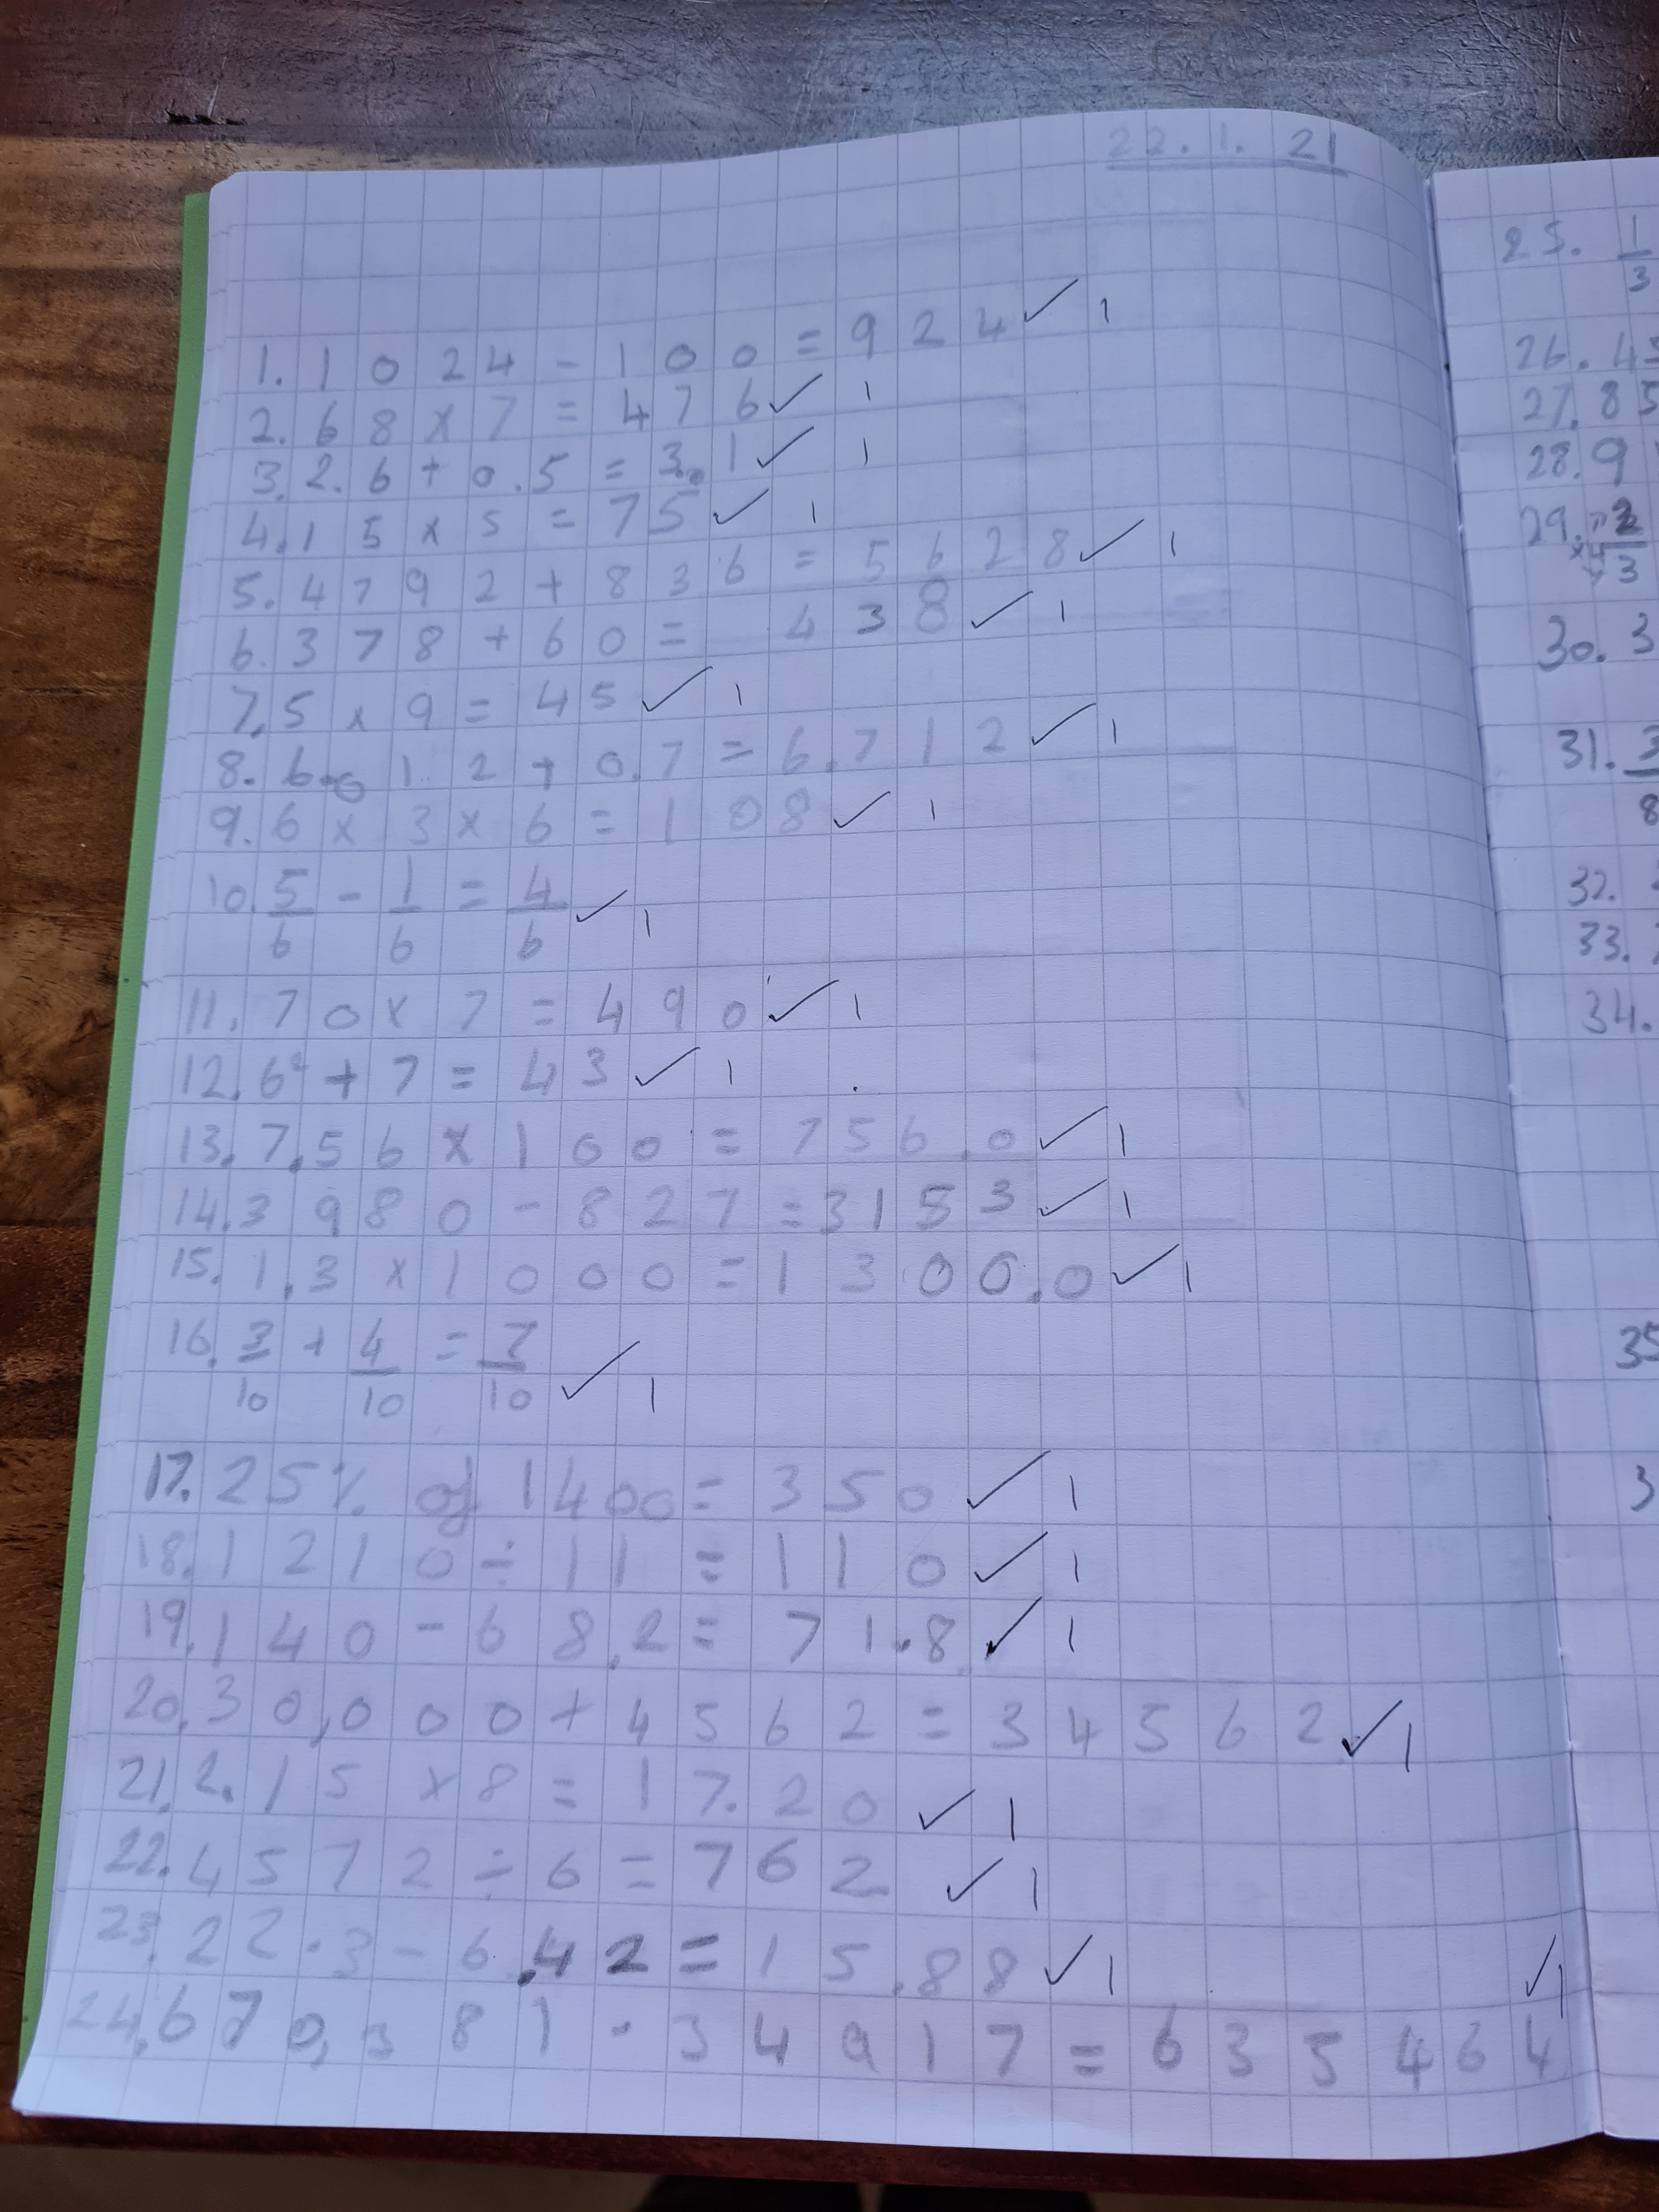 22.1.21
1. 1024 - 100 = 924 ✓ 1
2. 68 x 7 = 476 ✓ 1
3. 2.6 + 0.5 = 3.1 ✓ 1
4. 15 x 5 = 75 ✓ 1
5. 4792 + 836 = 5628 ✓ 1
6. 378 + 60 = 438 ✓ 1
7. 5 x 9 = 45 ✓ 1
8. 6.012 + 0.7 = 6.712 ✓ 1
9. 6 x 3 x 6 = 108 ✓ 1
10. 5/6 - 1/6 = 4/6 ✓ 1
11. 70 x 7 = 490 ✓ 1
12. 6² + 7 = 43 ✓ 1
13. 7.56 x 100 = 756.0 ✓ 1
14. 3980 - 827 = 3153 ✓ 1
15. 1.3 x 1000 = 1300.0 ✓ 1
16. 3/10 + 4/10 = 7/10 ✓ 1
17. 25% of 1400 = 350 ✓ 1
18. 1210 ÷ 11 = 110 ✓ 1
19. 140 - 68.2 = 71.8 ✓ 1
20. 30,000 + 4562 = 34562 ✓ 1
21. 2.15 x 8 = 17.20 ✓ 1
22. 4572 ÷ 6 = 762 ✓ 1
23. 22.3 - 6.42 = 15.88 ✓ 1
24. 670,381 - 34917 = 635464 ✓ 1
25. 1/3
26. 45
27. 85
28. 9
29. 2/3
30. 3
31. 3/8
32.
33.
34.
35
3